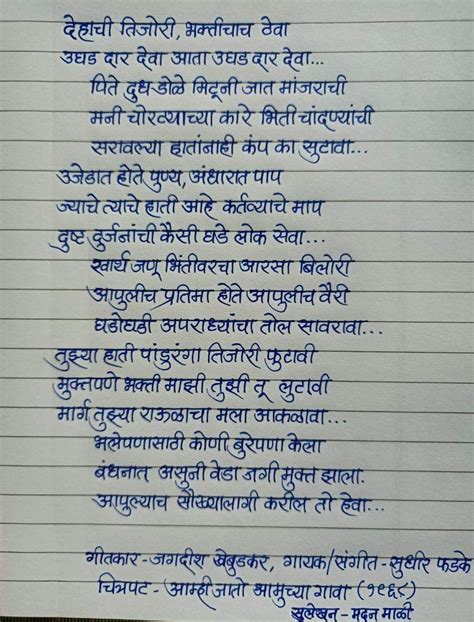 देहाची तिजोरी, भक्तीचाच ठेवा
उघड दार देवा आता उघड दार देवा...
पिते दुध डोळे मिटूनी जात मांजराची
मनी चोरट्याच्या कारे भिती चांदण्यांची
सरावल्या हातांनाही कंप का सुटावा...
उजेडात होते पुण्य, अंधारात पाप
ज्याचे त्याचे हाती आहे कर्तव्याचे माप
दुष्ट दुर्जनांची कैसी घडे लोक सेवा...
स्वार्थ जणू भिंतीवरचा आरसा बिलोरी
आपुलीच प्रतिमा होते आपुलीच वैरी
घडोघडी अपराध्यांचा तोल सावरावा...
तुझ्या हाती पांडुरंगा तिजोरी फुटावी
मुक्तपणे भक्ती माझी तुझी तू लुटावी
मार्ग तुझ्या राऊळाचा मला आकळावा...
भलेपणासाठी कोणी बुरेपणा केला
बंधनात असुनी वेडा जगी मुक्त झाला.
आपुल्याच सौख्यालागी करील तो हेवा...
गीतकार - जगदीश खेबुडकर, गायक/संगीत - सुधीर फडके
चित्रपट - आम्ही जातो आमुच्या गावा (१९६८)
सुलेखन - मदन माळी